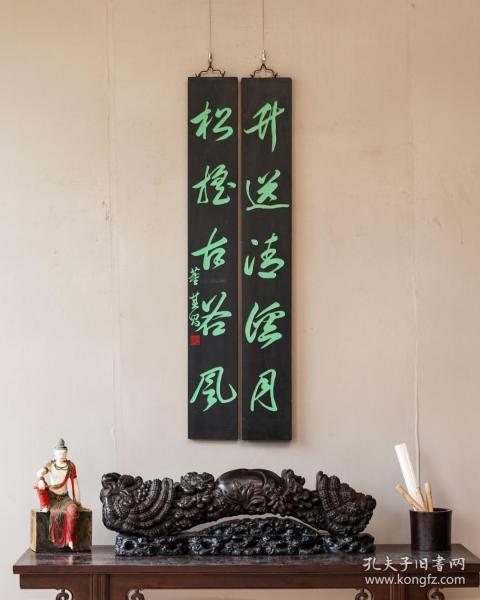 舟送清溪月
松摇古谷风
董其昌
孔夫子旧书网
www.kongfz.com